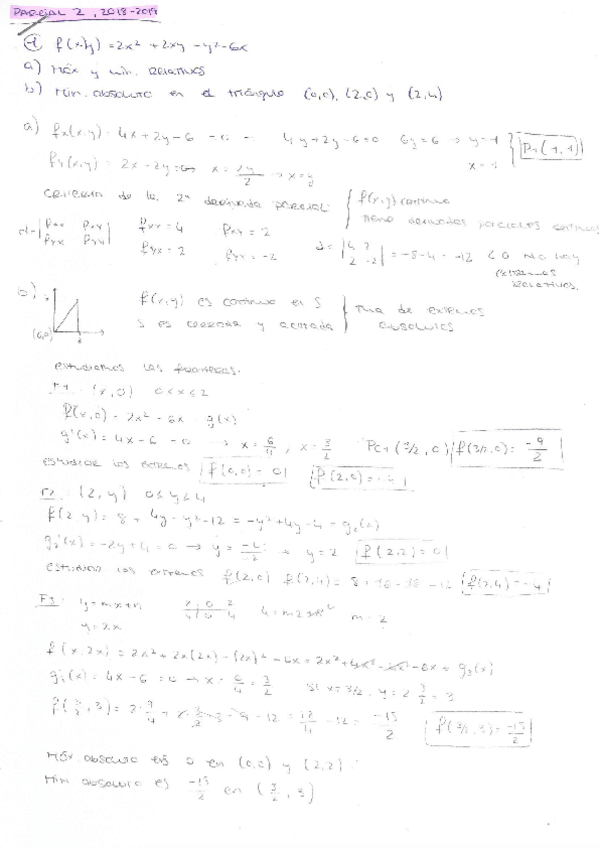 PARCIAL 2, 2018-2019
1 f(x,y) = 2x² + 2xy - y² - 6x
a) Máx y mín. Relativos
b) Mín. absoluto en el triángulo (0,0), (2,0) y (2,4)
a) fx(x,y) = 4x + 2y - 6 = 0 4y + 2y - 6 = 0 6y = 6 → y = 1 P1(1,1)
fy(x,y) = 2x - 2y = 0 → x = 2y/2 → x = y x = 1
criterio de la 2ª derivada parcial: f(x,y) continua
tiene derivadas parciales continuas
d = |fxx fxy| fxx = 4 fxy = 2 d = |4 2| = -8 - 4 = -12 < 0 No hay
|fyx fyy| fyx = 2 fyy = -2 |2 -2| extremos
relativos.
b) f(x,y) es continua en S
S es cerrada y acotada Tma de extremos absolutos
(0,0) 2
estudiamos las fronteras.
F1: (x,0) 0 ≤ x ≤ 2
f(x,0) = 2x² - 6x = g1(x)
g'(x) = 4x - 6 = 0 → x = 6/4, x = 3/2 PC1 (3/2, 0) f(3/2,0) = -9/2
estudiar los extremos f(0,0) = 0 f(2,0) = -4
F2: (2,y) 0 ≤ y ≤ 4
f(2,y) = 8 + 4y - y² - 12 = -y² + 4y - 4 = g2(x)
g2'(x) = -2y + 4 = 0 → y = -4/-2 → y = 2 f(2,2) = 0
estudiar los extremos f(2,0) f(2,4) = 8 + 16 - 16 - 12 f(2,4) = -4
F3: y = mx + n x 0 2 m = 2
y = 2x y 0 4
f(x,2x) = 2x² + 2x(2x) - (2x)² - 6x = 2x² + 4x² - 4x² - 6x = g3(x)
g3'(x) = 4x - 6 = 0 → x = 6/4 = 3/2 Si x = 3/2, y = 2 3/2 = 3
f(3/2,3) = -15/2
Máx. absoluto es 0 en (0,0) y (2,2)
Mín absoluto es -15/2 en (3/2, 3)